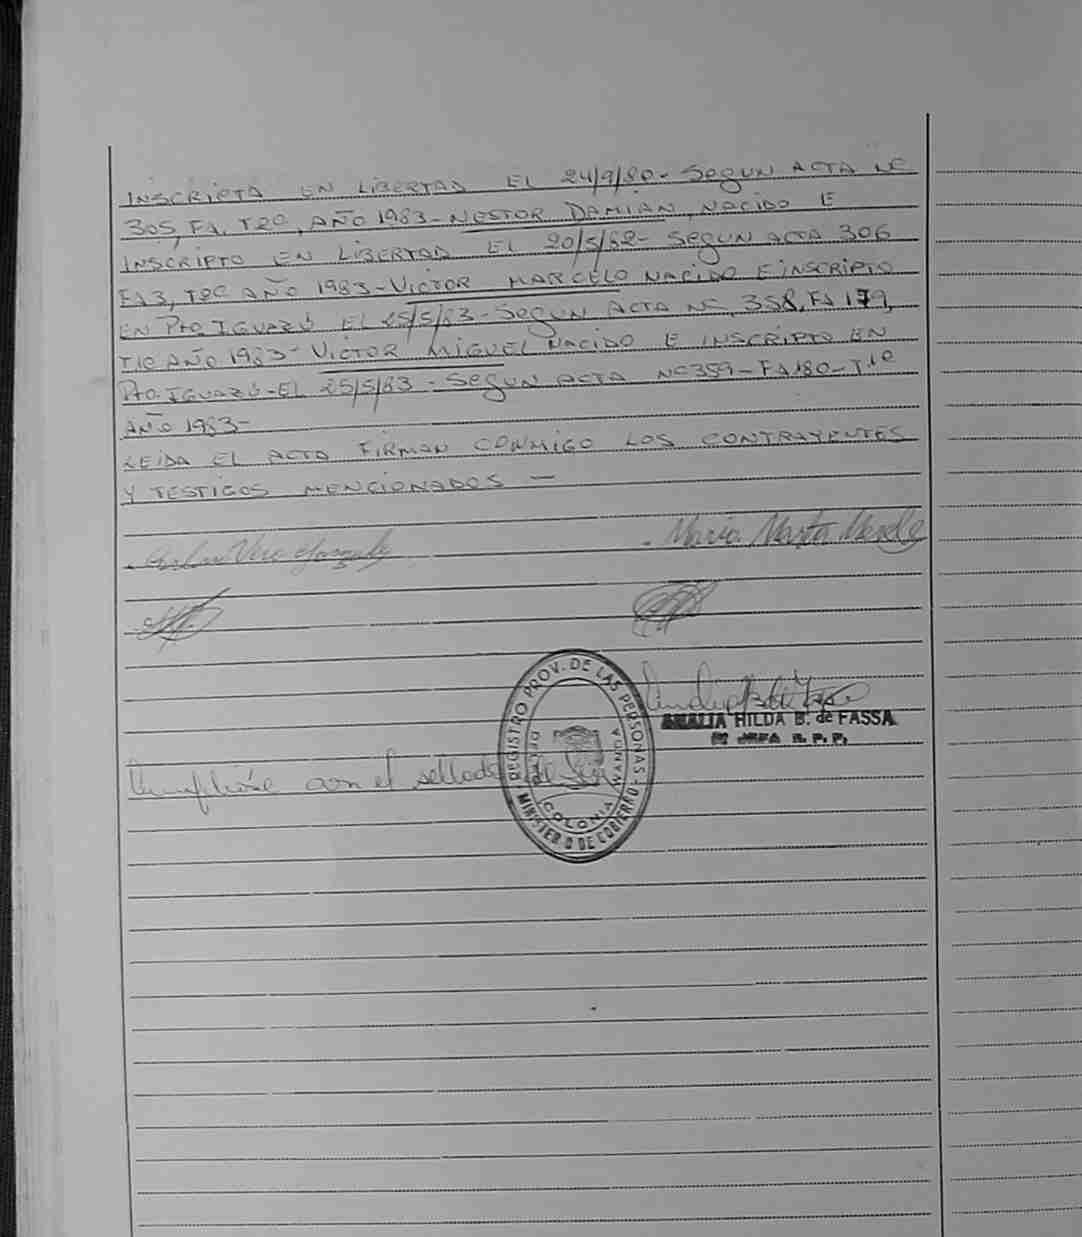 INSCRIPTA EN LIBERTAD EL 24/9/80- SEGUN ACTA Nº
305, Fº1. TºC, AÑO 1983- NESTOR DAMIAN, NACIDO E
INSCRIPTO EN LIBERTAD EL 20/5/82- SEGUN ACTA 306
TºC AÑO 1983- VICTOR MARCELO NACIDO E INSCRIPTO
EN Pto. IGUAZÚ EL 25/5/83- SEGUN ACTA Nº, 358, Fº 179,
AÑO 1983- VICTOR MIGUEL NACIDO E INSCRIPTO EN
Pto. IGUAZÚ-EL 25/5/83- SEGUN ACTA Nº359-Fº180-Tº1º
AÑO 1983-
LEIDA EL ACTA FIRMAN CONMIGO LOS CONTRAYENTES
Y TESTIGOS MENCIONADOS —
Maria Marta
REGISTRO PROV. DE LAS PERSONAS
MINISTERIO DE GOBIERNO
COLONIA WANDA
HILDA B. de FASSA
JEFA R. P. P.
con el sellado de